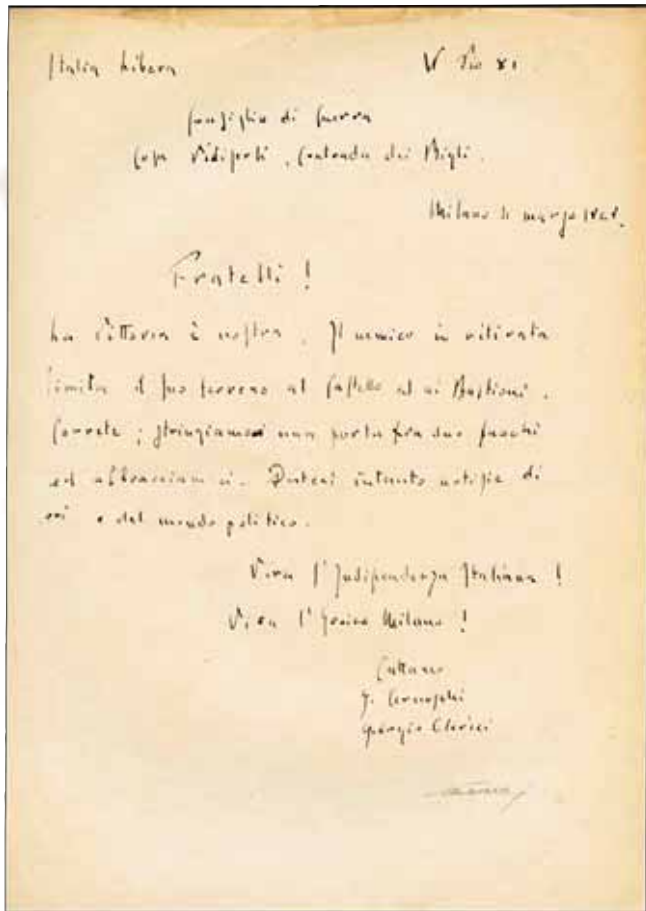 Italia libera W Pio XI
Consiglio di Guerra
Casa Vidiserti, Contrada dei Bigli.
Milano 21 marzo 1848.
Fratelli!
La Vittoria è nostra. Il nemico in ritirata
limita il suo terreno al Castello ed ai Bastioni.
Correte; stringiamo una porta fra due fuochi
ed abbracciamci. Dateci intanto notizie di
voi e del mondo politico.
Viva l'Indipendenza Italiana!
Viva l'eroica Milano!
Cattaneo
Cernuschi
Giorgio Clerici